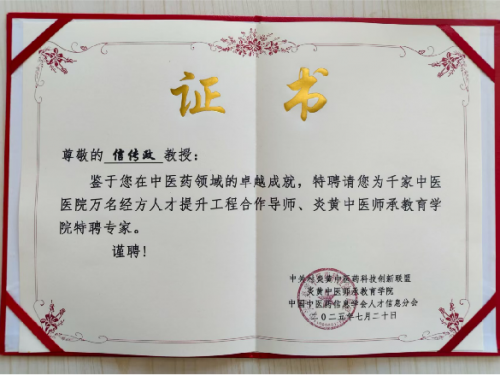 证书
尊敬的 信传政 教授:
鉴于您在中医药领域的卓越成就，特聘请您为千家中医
医院万名经方人才提升工程合作导师、炎黄中医师承教育学
院特聘专家。
谨聘!
炎黄中医药科技创新联盟
炎黄中医师承教育学院
中国中医药信息学会人才信息分会
二〇二五年七月二十日